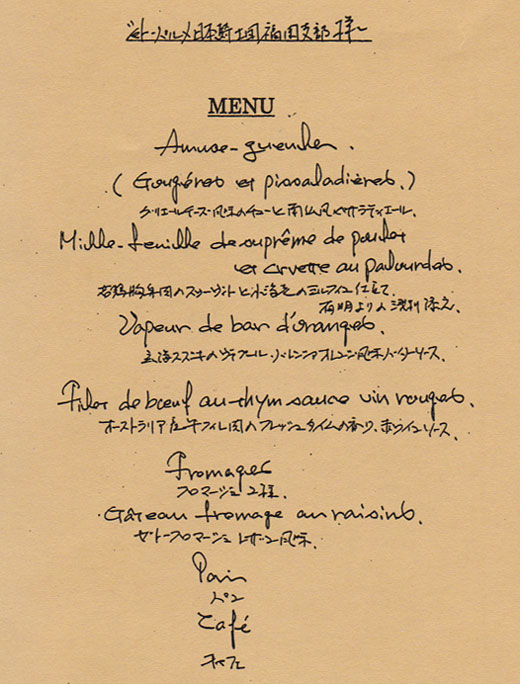 日本騎士団福岡支部 様
MENU
Amuse-gueules.
(Gougéres et pissaladières.)
グリエールチーズ風味のシューと南仏風ピサラディエール.
Mille-feuille de suprême de poulet
et crvette au palourdes.
若鶏胸身肉のスゥーヴットと小海老のミルフィユ仕立て
有明より浅利添え.
Vapeur de bar d'oranges.
玄海スズキのヴァプール.バレンシアオレンジ風味バターソース.
Filet de bœuf au thym sauce vin rouges.
オーストラリア産牛フィレ肉のフレッシュタイムの香り、赤ワインソース.
Fromages
フロマージュ2種.
Gâteau fromage au raisins.
ガトーフロマージュ レザン風味.
Pain
パン
Café
カフェ